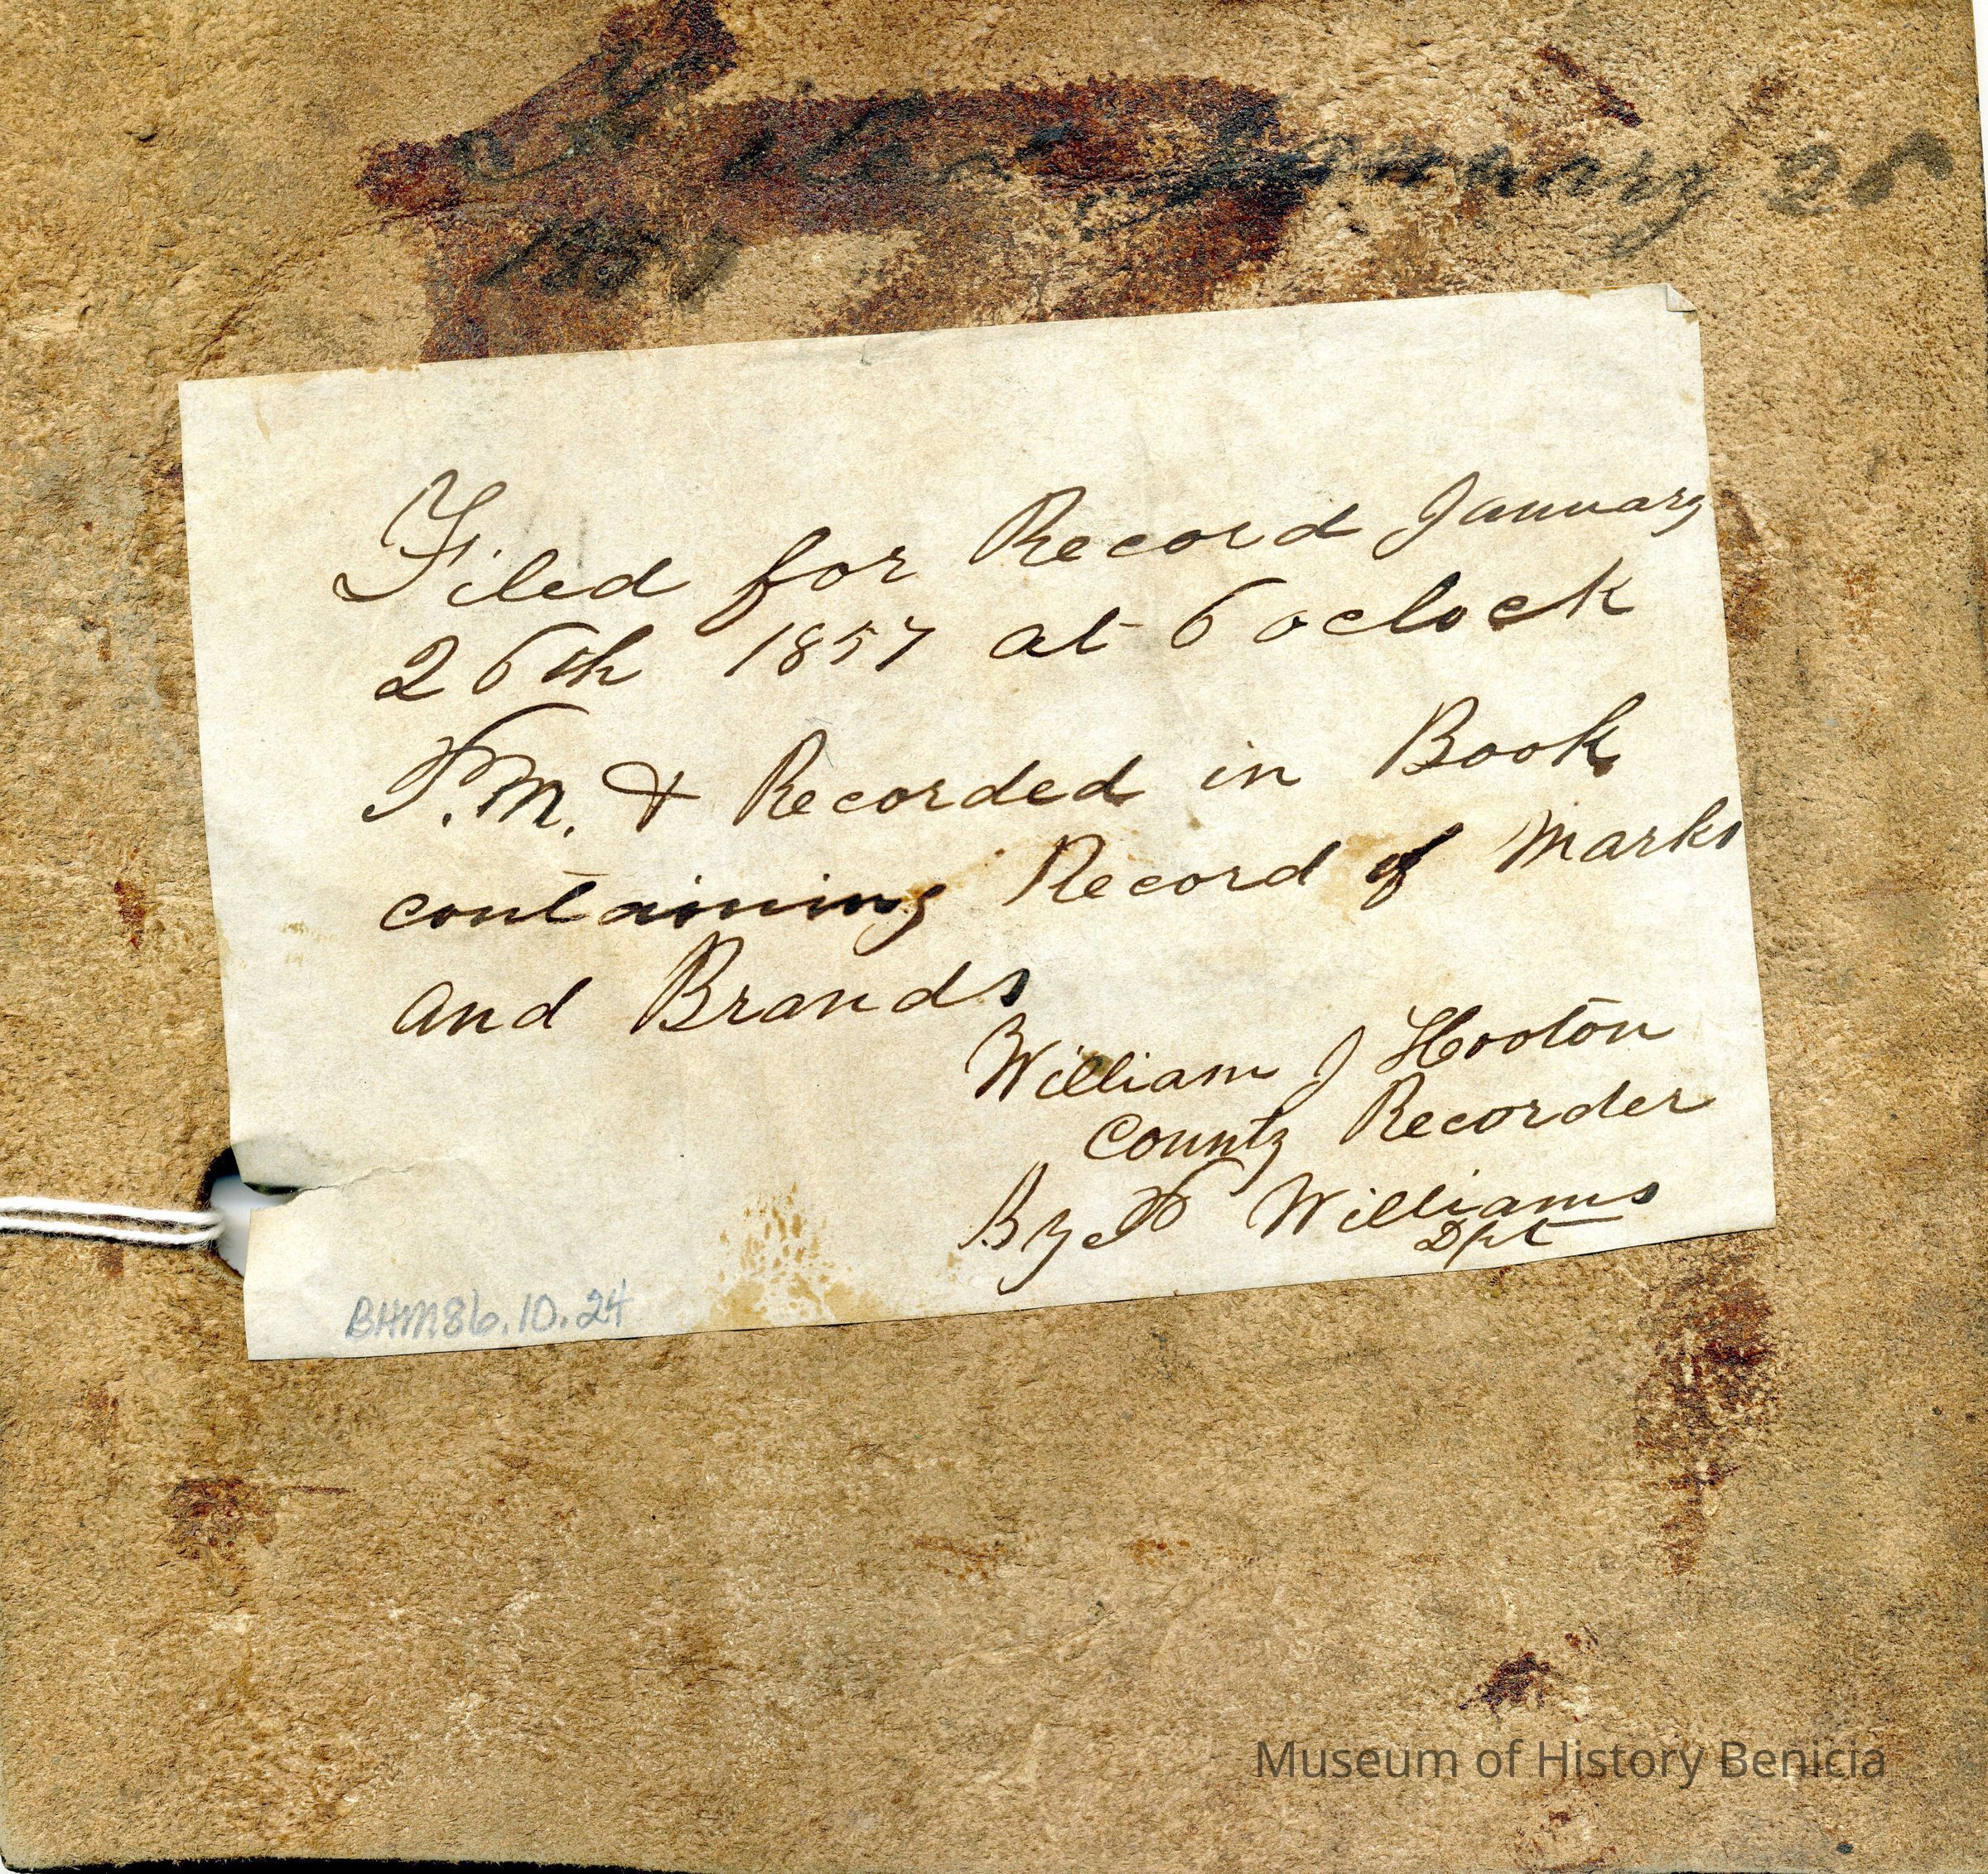 January 28
Filed for Record January
26th 1857 at 6 oclock
P.M. & Recorded in Book
containing Record of Marks
and Brands
William J Hooton
County Recorder
By Williams
Dpt
BHM86.10.24
Museum of History Benicia